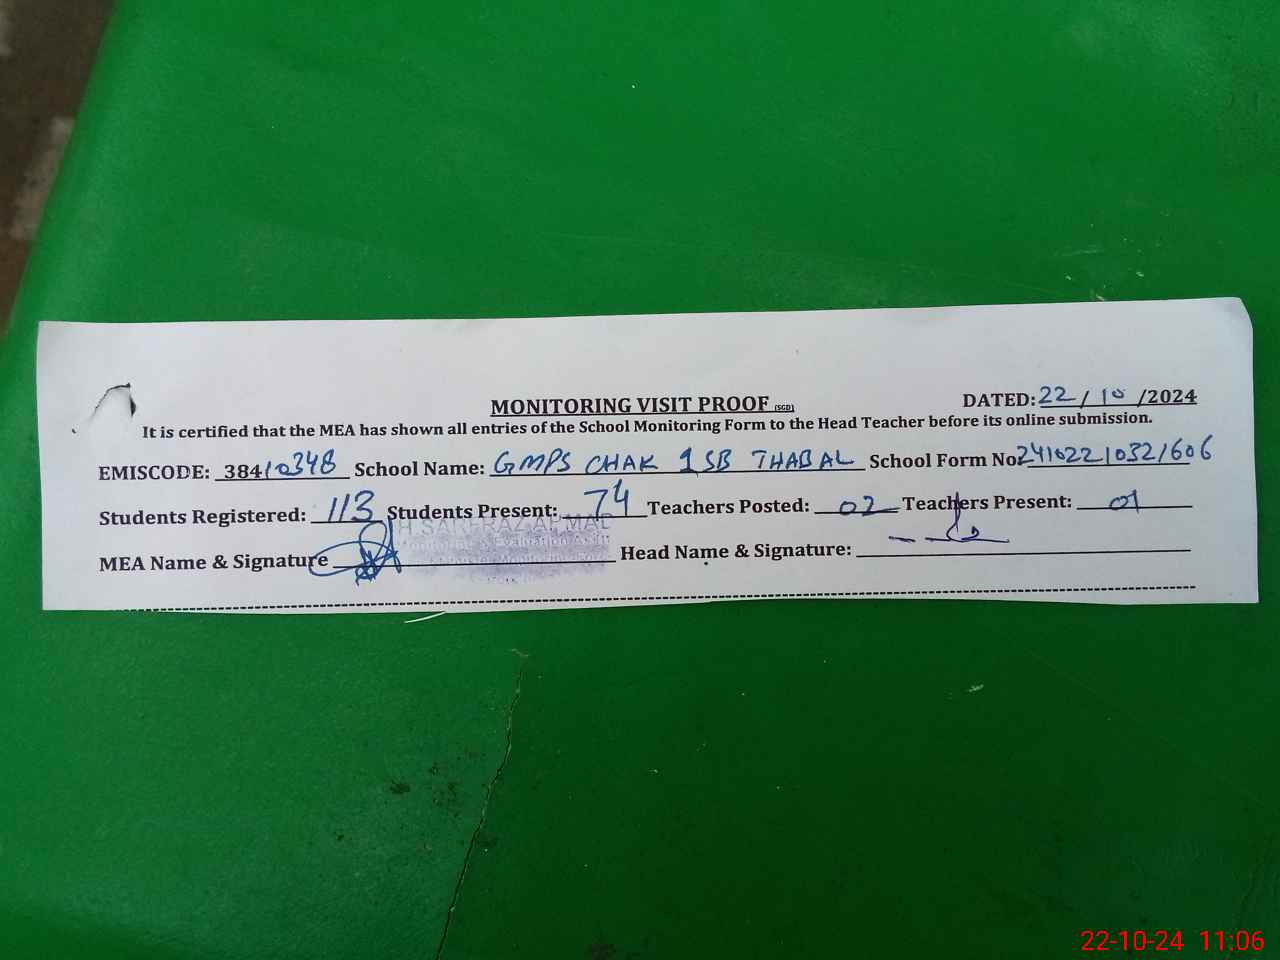 MONITORING VISIT PROOF (SGD) DATED: 22 / 10 /2024
It is certified that the MEA has shown all entries of the School Monitoring Form to the Head Teacher before its online submission.
EMISCODE: 38410348 School Name: GMPS CHAK 1 SB THABAL School Form No: 24102210321606
Students Registered: 113 Students Present: 74 Teachers Posted: 02 Teachers Present: 01
H.SARFRAZ AHMAD
Monitoring & Evaluation Assistt
MEA Name & Signature Head Name & Signature:
22-10-24 11:06